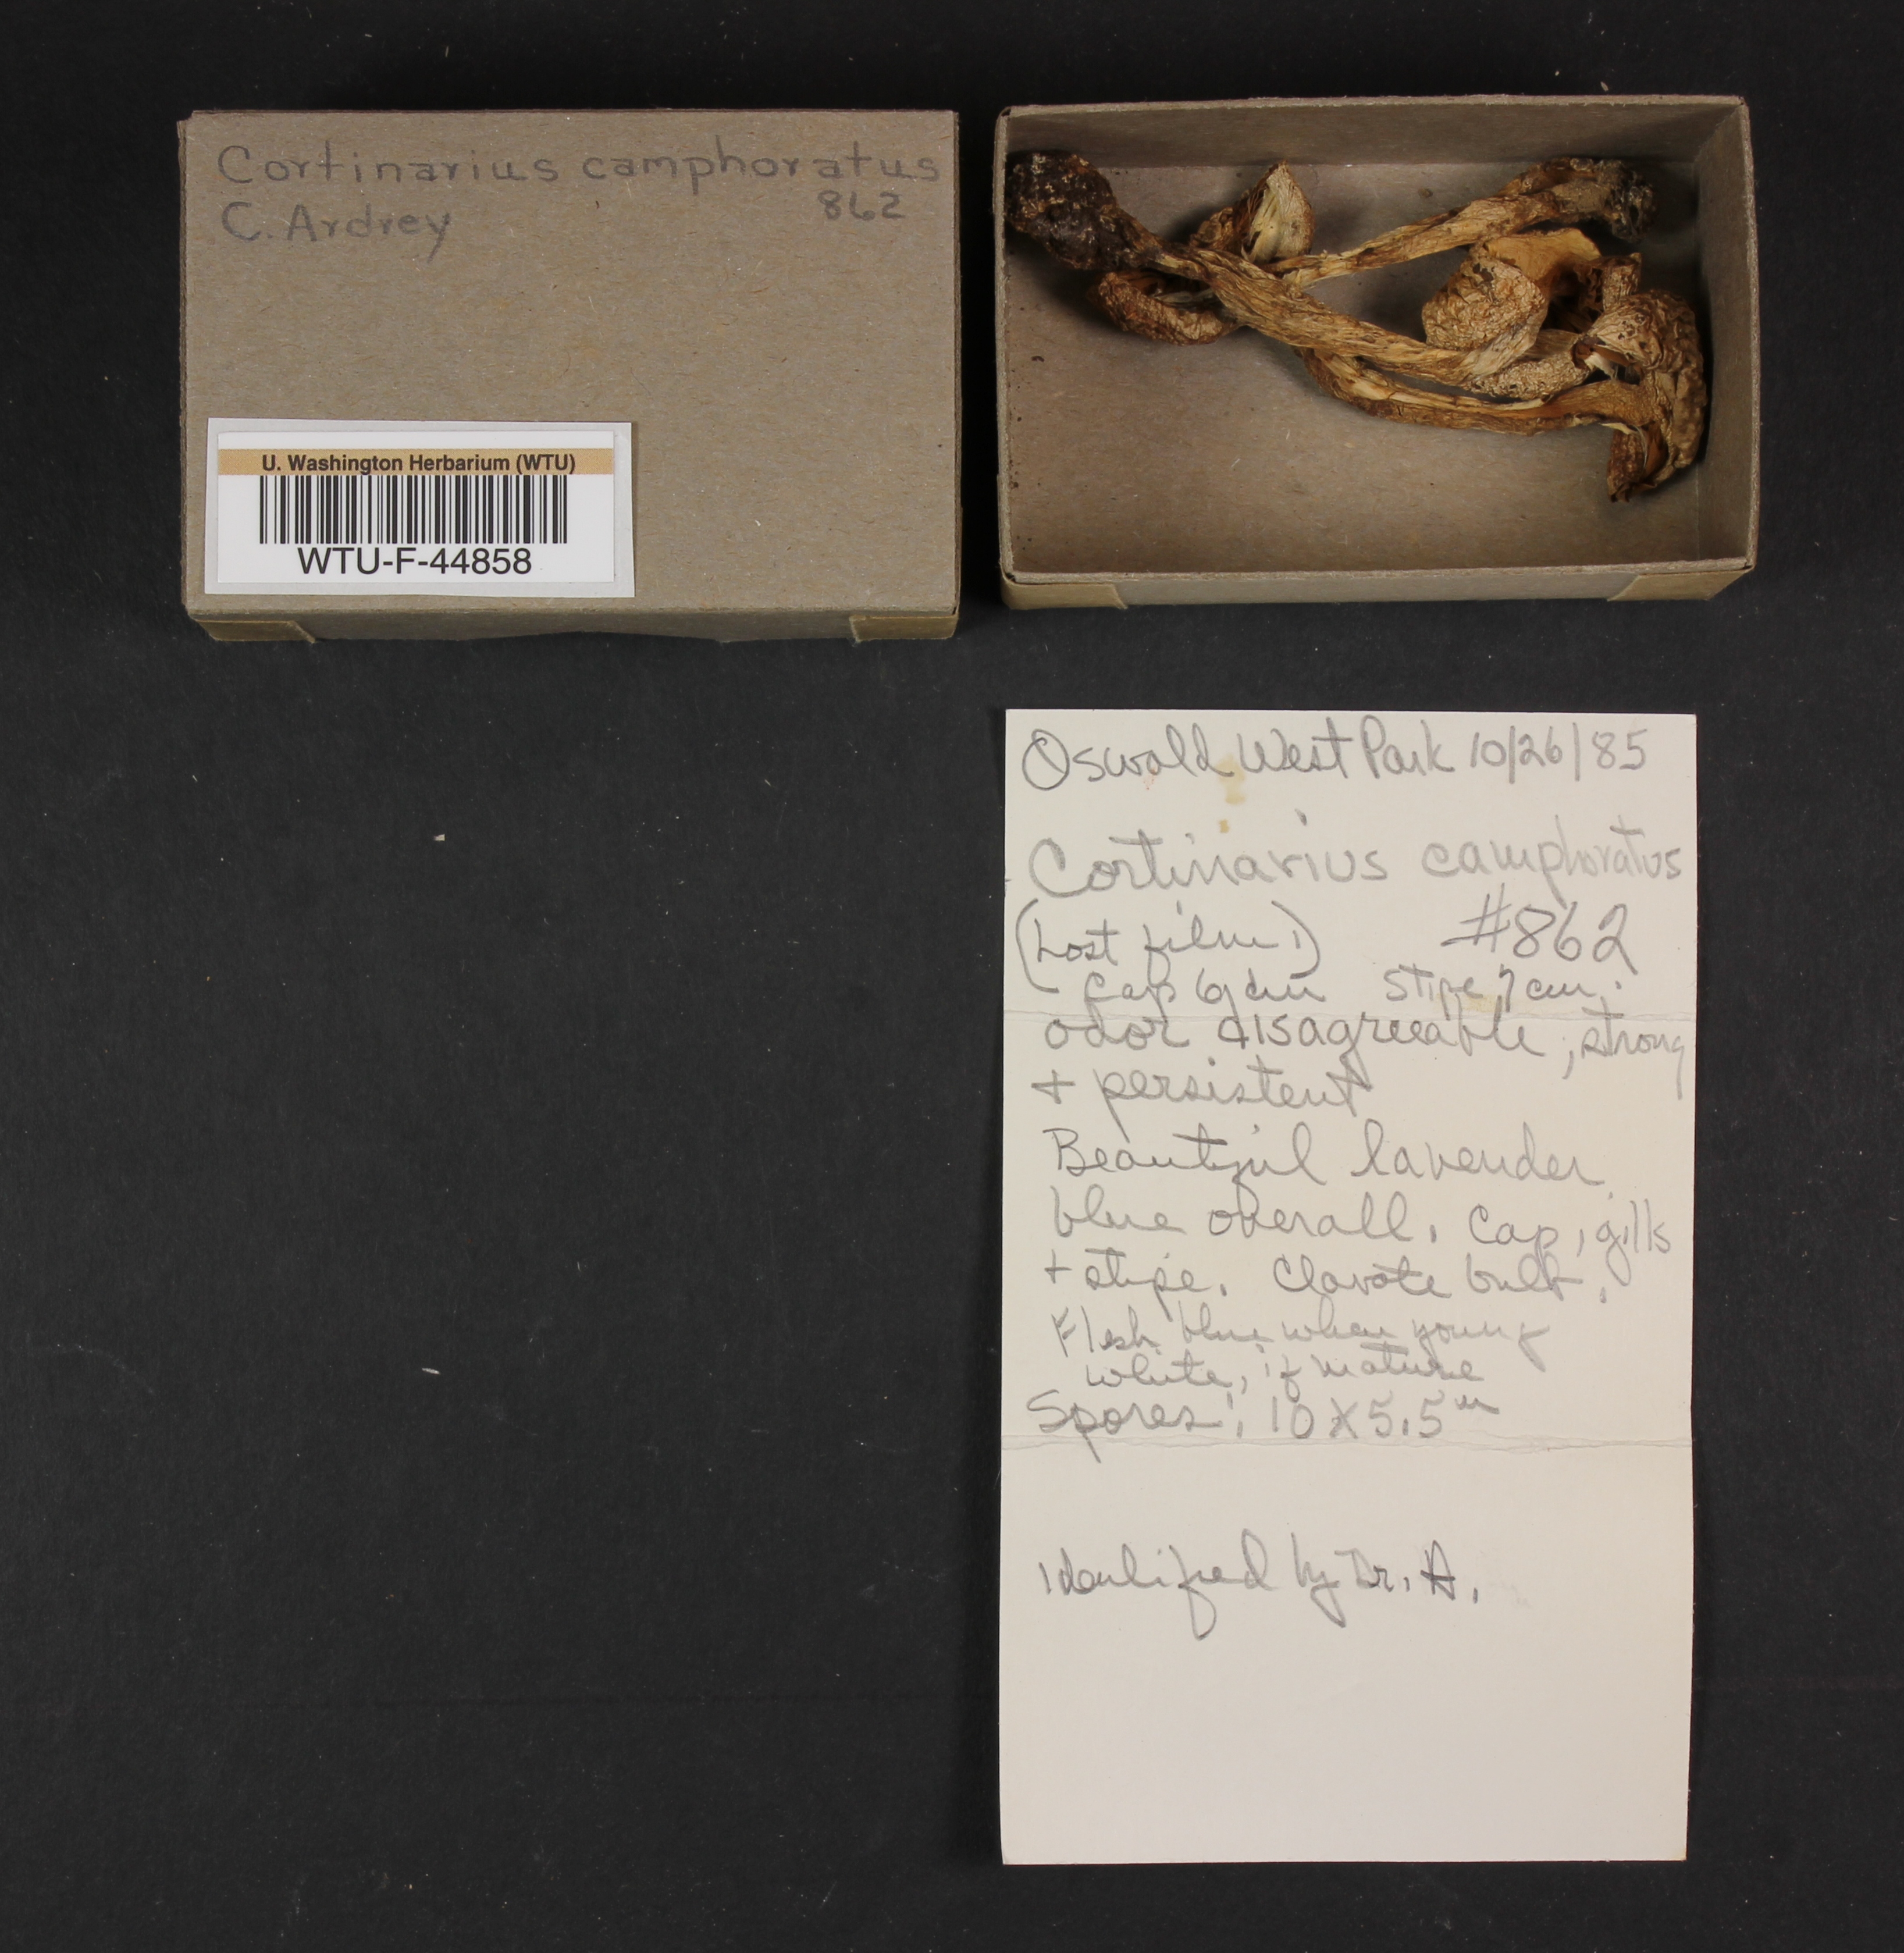 Cortinarius camphoratus
862
C. Ardrey
U. Washington Herbarium (WTU)
WTU-F-44858
Oswald West Park 10/26/85
Cortinarius camphoratus
(Lost film!) #862
Cap 6 cm Stipe 7 cm.
odor disagreeable, strong
+ persistent
Beautiful lavender
blue overall, Cap, gills
+ stipe. Clavate bulb.
Flesh blue when young
white, if mature
Spores: 10 X 5.5
Identified by Dr. A.